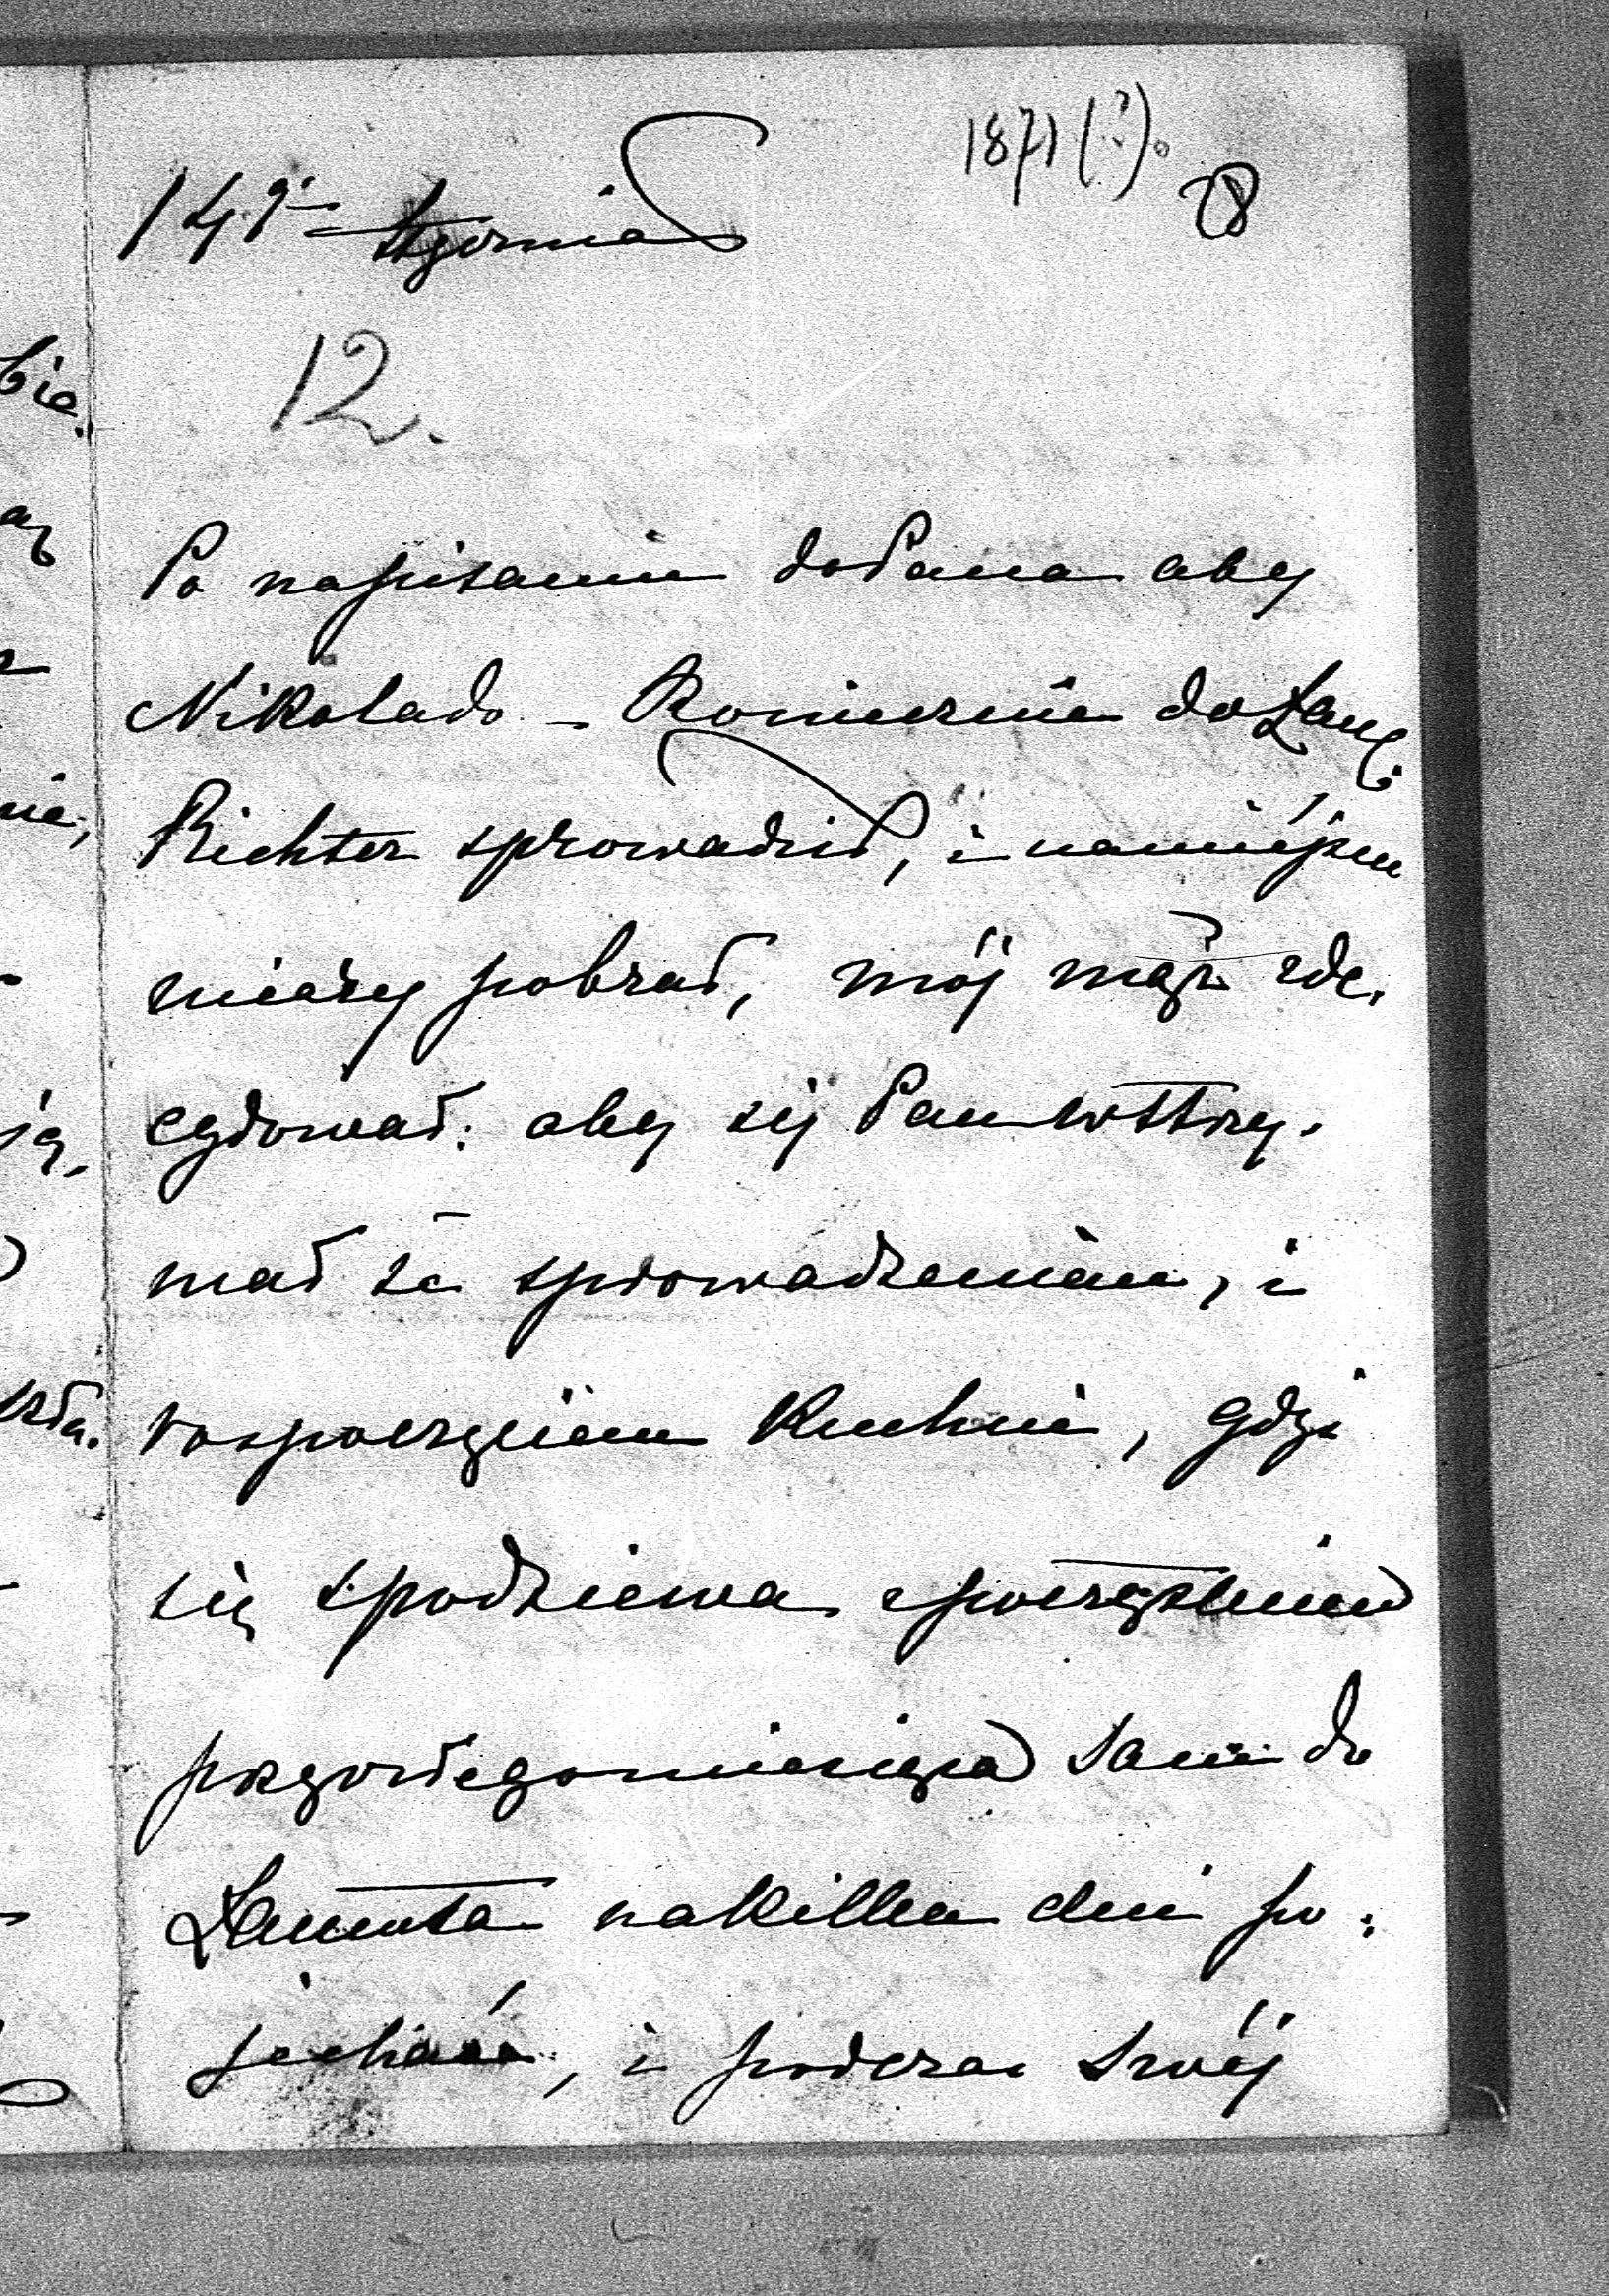 1871 (?).
28
14go stycznia
12.
Po napisaniu do Pana aby
Nikolado - Koniecznie do Łań,
Richter sprowadził, i na miejscu
miary pobrał, mój mąż zde,
cydował: aby się Pan wstrzy,
mał ze sprowadzeniem, i
rospoczęciem Kuchni, gdyż
się spodziewa z początkiem
przyszłego miesiąca sam do
Łańcuta na kilka dni po,
jechać, i podczas swéj